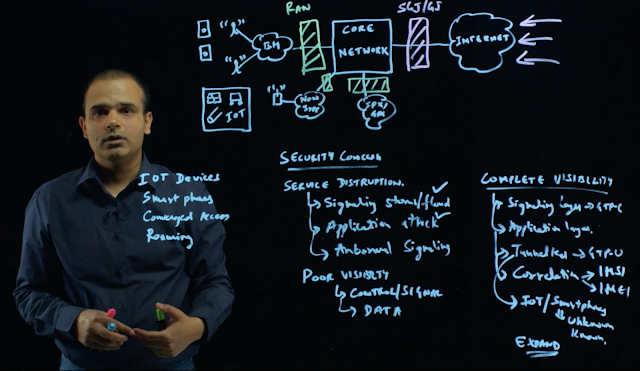 RAN
SGI/GI
CORE
NETWORK
INTERNET
IOT
SECURITY CONCERN
SERVICE DISTRUPTION.
Signaling storms/flood
Application attack
Anbormal Signaling
POOR VISIBLTY
CONTROL/SIGNAL
DATA
IOT Devices
Smart phones
Converged Access
Roaming
COMPLETE VISIBILITY
Signaling layer → GTP-C
Application layer
Tunnelled → GTP-U
Correlation → IMSI
IMEI
IOT/Smartphones
Unknown
Known.
EXPAND